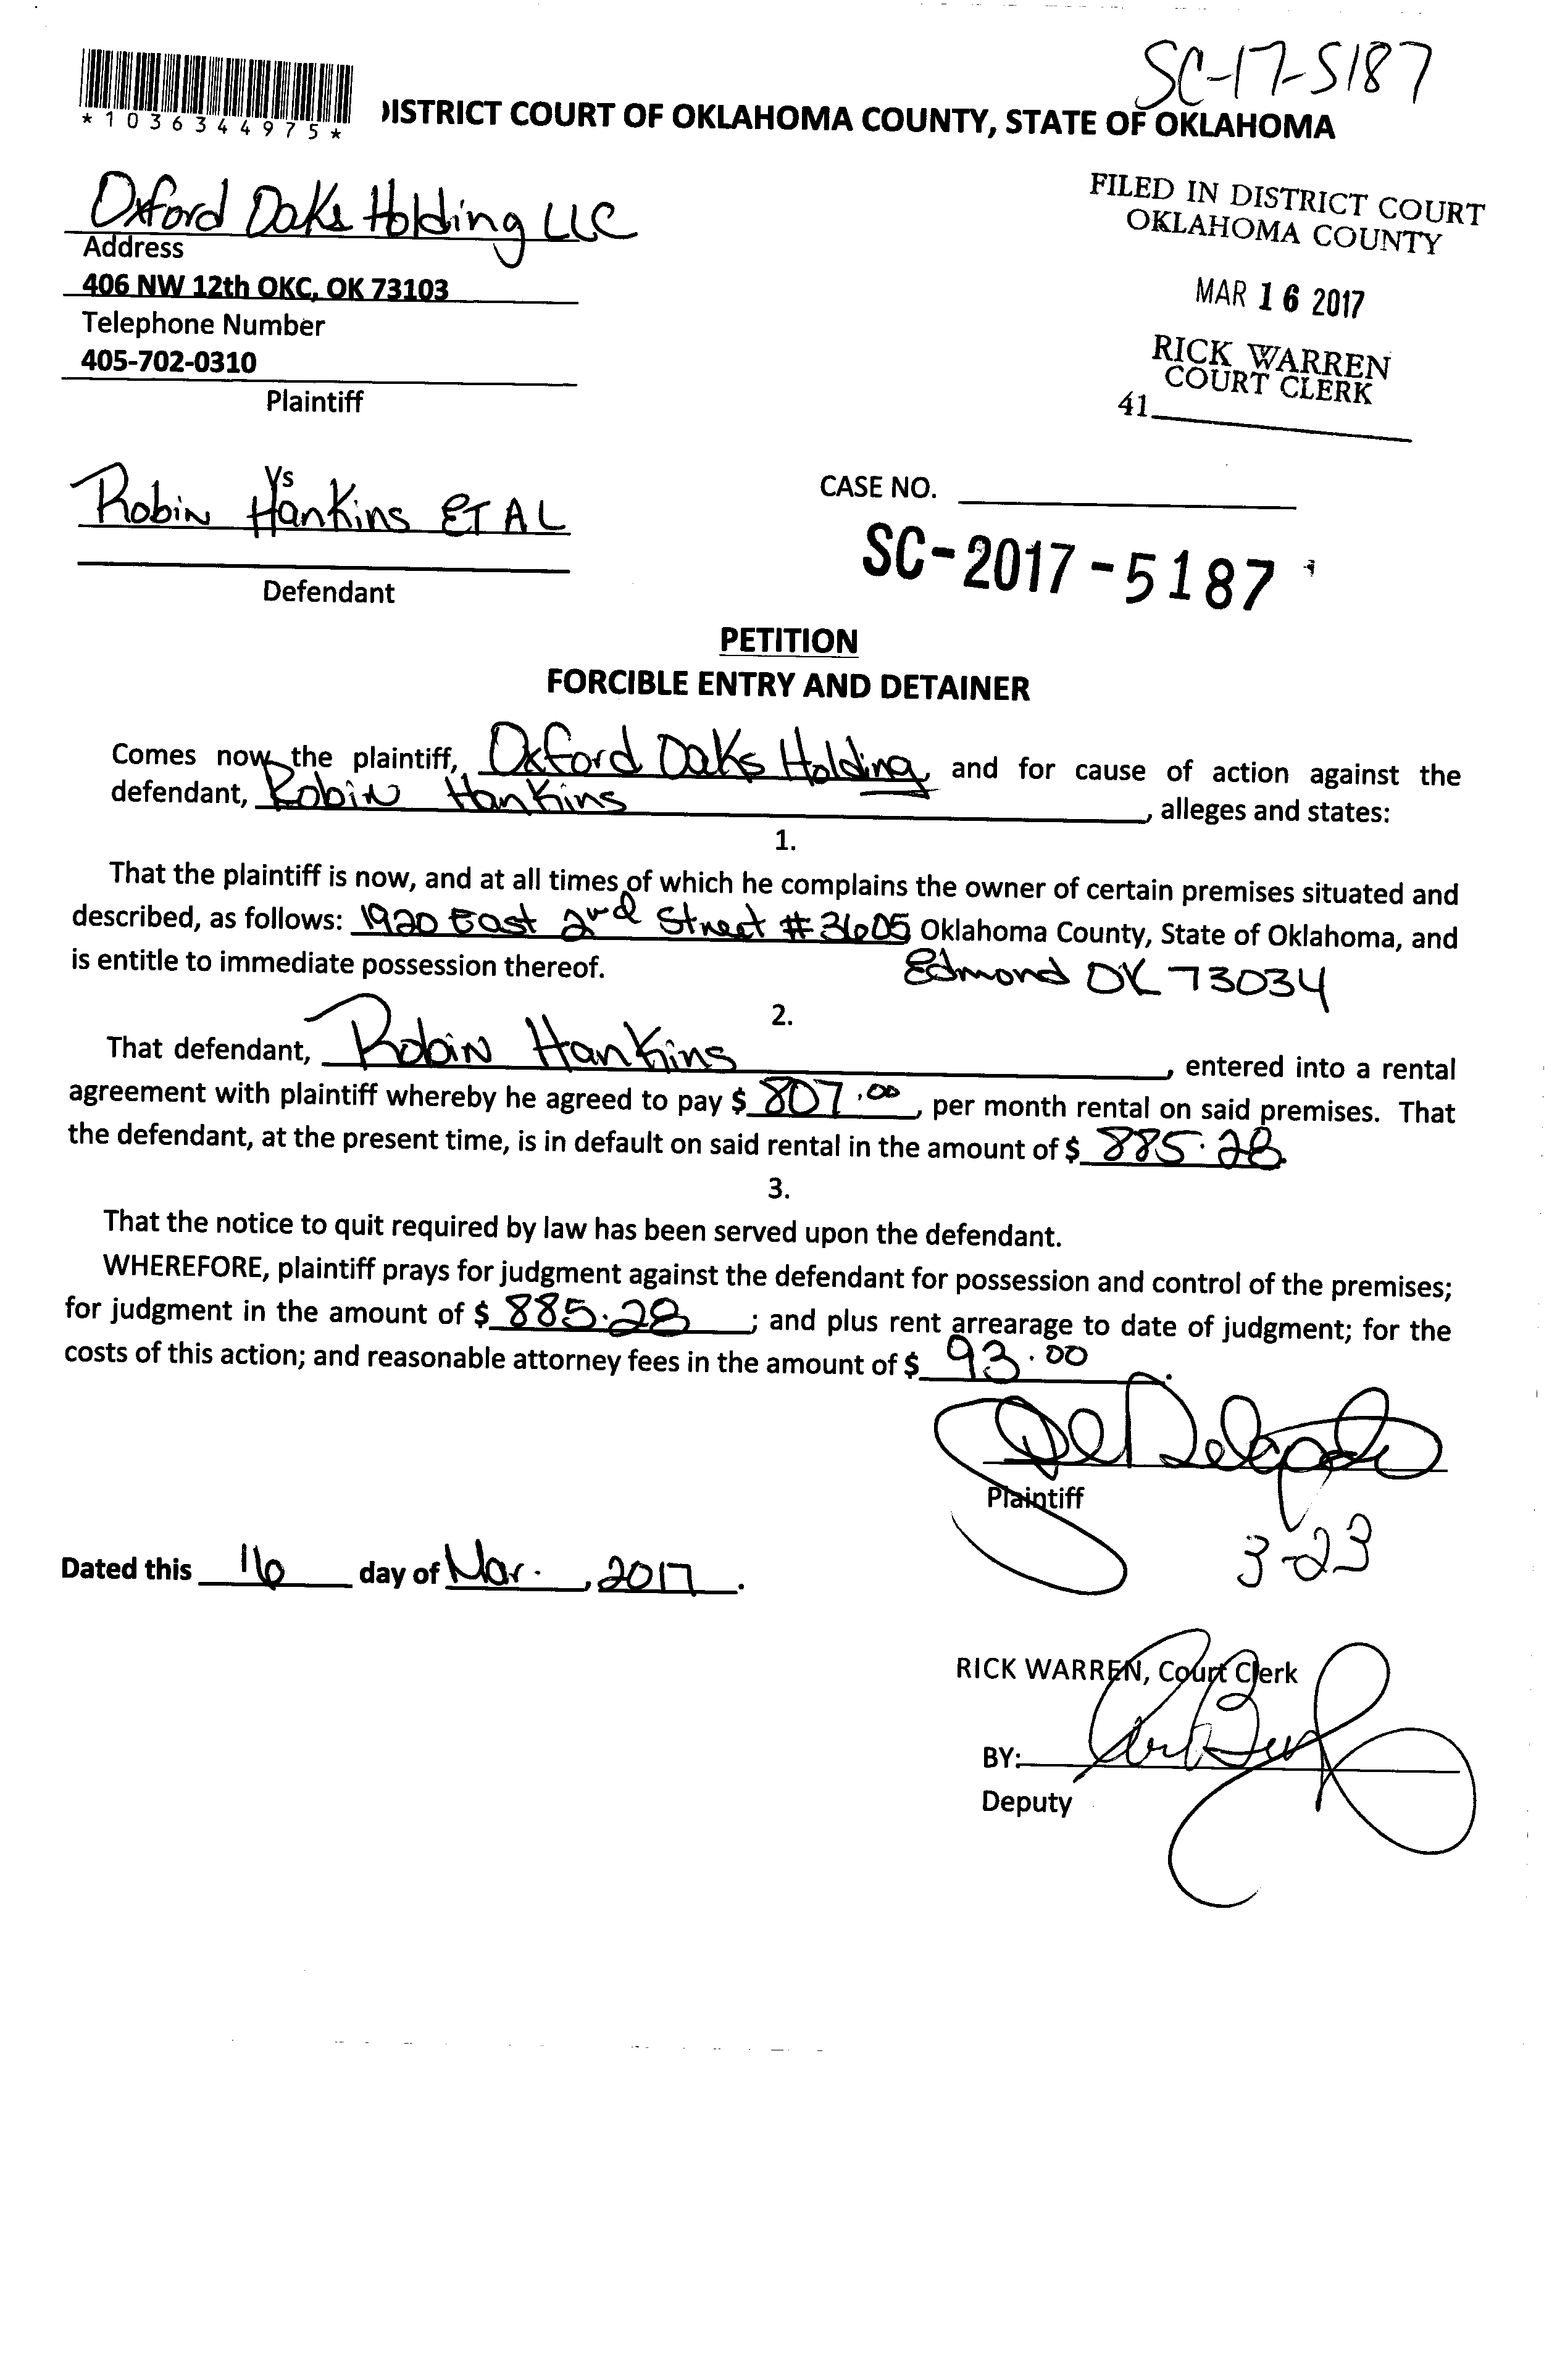 SC-17-5187
*1036344975*
DISTRICT COURT OF OKLAHOMA COUNTY, STATE OF OKLAHOMA
Oxford Oaks Holding LLC
Address
406 NW 12th OKC, OK 73103
Telephone Number
405-702-0310
Plaintiff
FILED IN DISTRICT COURT
OKLAHOMA COUNTY
MAR 16 2017
RICK WARREN
COURT CLERK
41
Vs
Robin Hankins ET AL
Defendant
CASE NO.
SC-2017-5187
PETITION
FORCIBLE ENTRY AND DETAINER
Comes now the plaintiff, Oxford Oaks Holding, and for cause of action against the
defendant, Robin Hankins, alleges and states:
1.
That the plaintiff is now, and at all times of which he complains the owner of certain premises situated and
described, as follows: 1920 East 2nd Street #3605 Oklahoma County, State of Oklahoma, and
is entitle to immediate possession thereof. Edmond OK 73034
2.
That defendant, Robin Hankins, entered into a rental
agreement with plaintiff whereby he agreed to pay $ 807.00, per month rental on said premises. That
the defendant, at the present time, is in default on said rental in the amount of $ 885.28.
3.
That the notice to quit required by law has been served upon the defendant.
WHEREFORE, plaintiff prays for judgment against the defendant for possession and control of the premises;
for judgment in the amount of $ 885.28 ; and plus rent arrearage to date of judgment; for the
costs of this action; and reasonable attorney fees in the amount of $ 93.00.
Delgado
Plaintiff
3-23
Dated this 16 day of Mar., 2017.
RICK WARREN, Court Clerk
BY:
Deputy